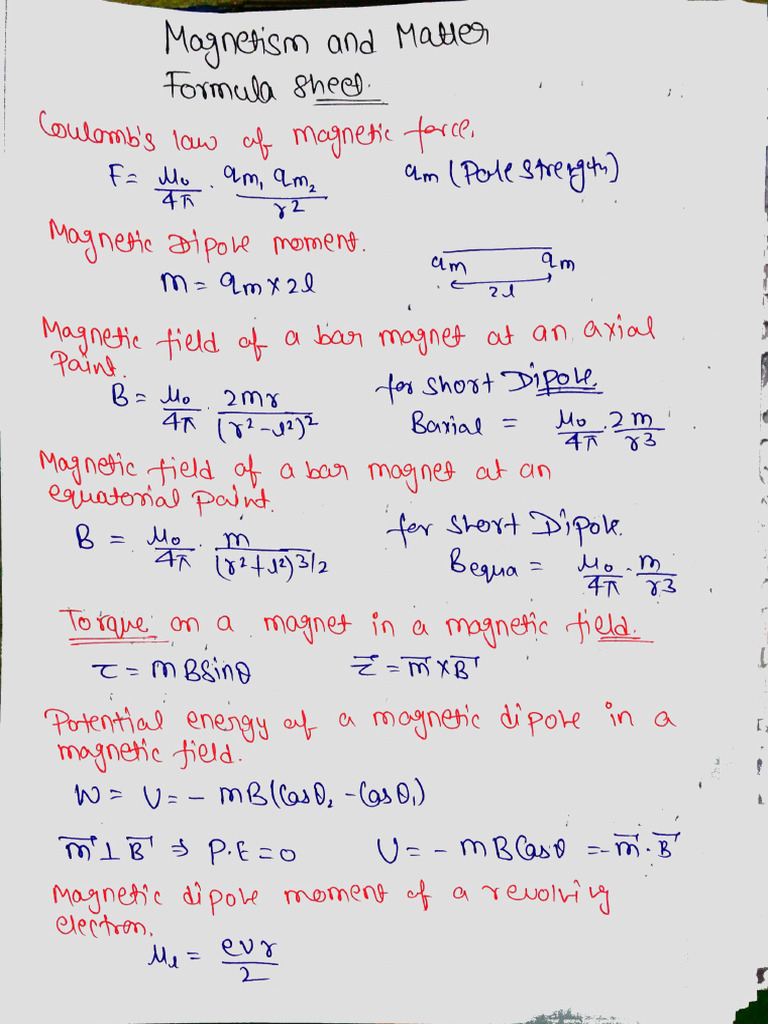 Magnetism and Matter
Formula Sheet.
Coulomb's law of magnetic force.
F = μ₀/4π · qm₁ qm₂/r² qm (Pole Strength)
Magnetic Dipole moment.
m = qm × 2l qm qm
2l
Magnetic field of a bar magnet at an axial
Paint.
B = μ₀/4π · 2mr/(r²-l²)² for Short Dipole
Baxial = μ₀/4π · 2m/r3
Magnetic field of a bar magnet at an
equatorial paint.
B = μ₀/4π · m/(r²+l²)3/2 for Short Dipole.
Bequa = μ₀/4π · m/r3
Torque: on a magnet in a magnetic field.
τ = mBSinθ τ⃗ = m⃗ × B⃗
Potential energy of a magnetic dipole in a
magnetic field.
W = U = - mB(Cosθ₂ - Cosθ₁)
m⃗ ⊥ B⃗ ⇒ P.E = 0 U = - mBCosθ = - m⃗ · B⃗
Magnetic dipole moment of a revolving
electron.
μl = evr/2